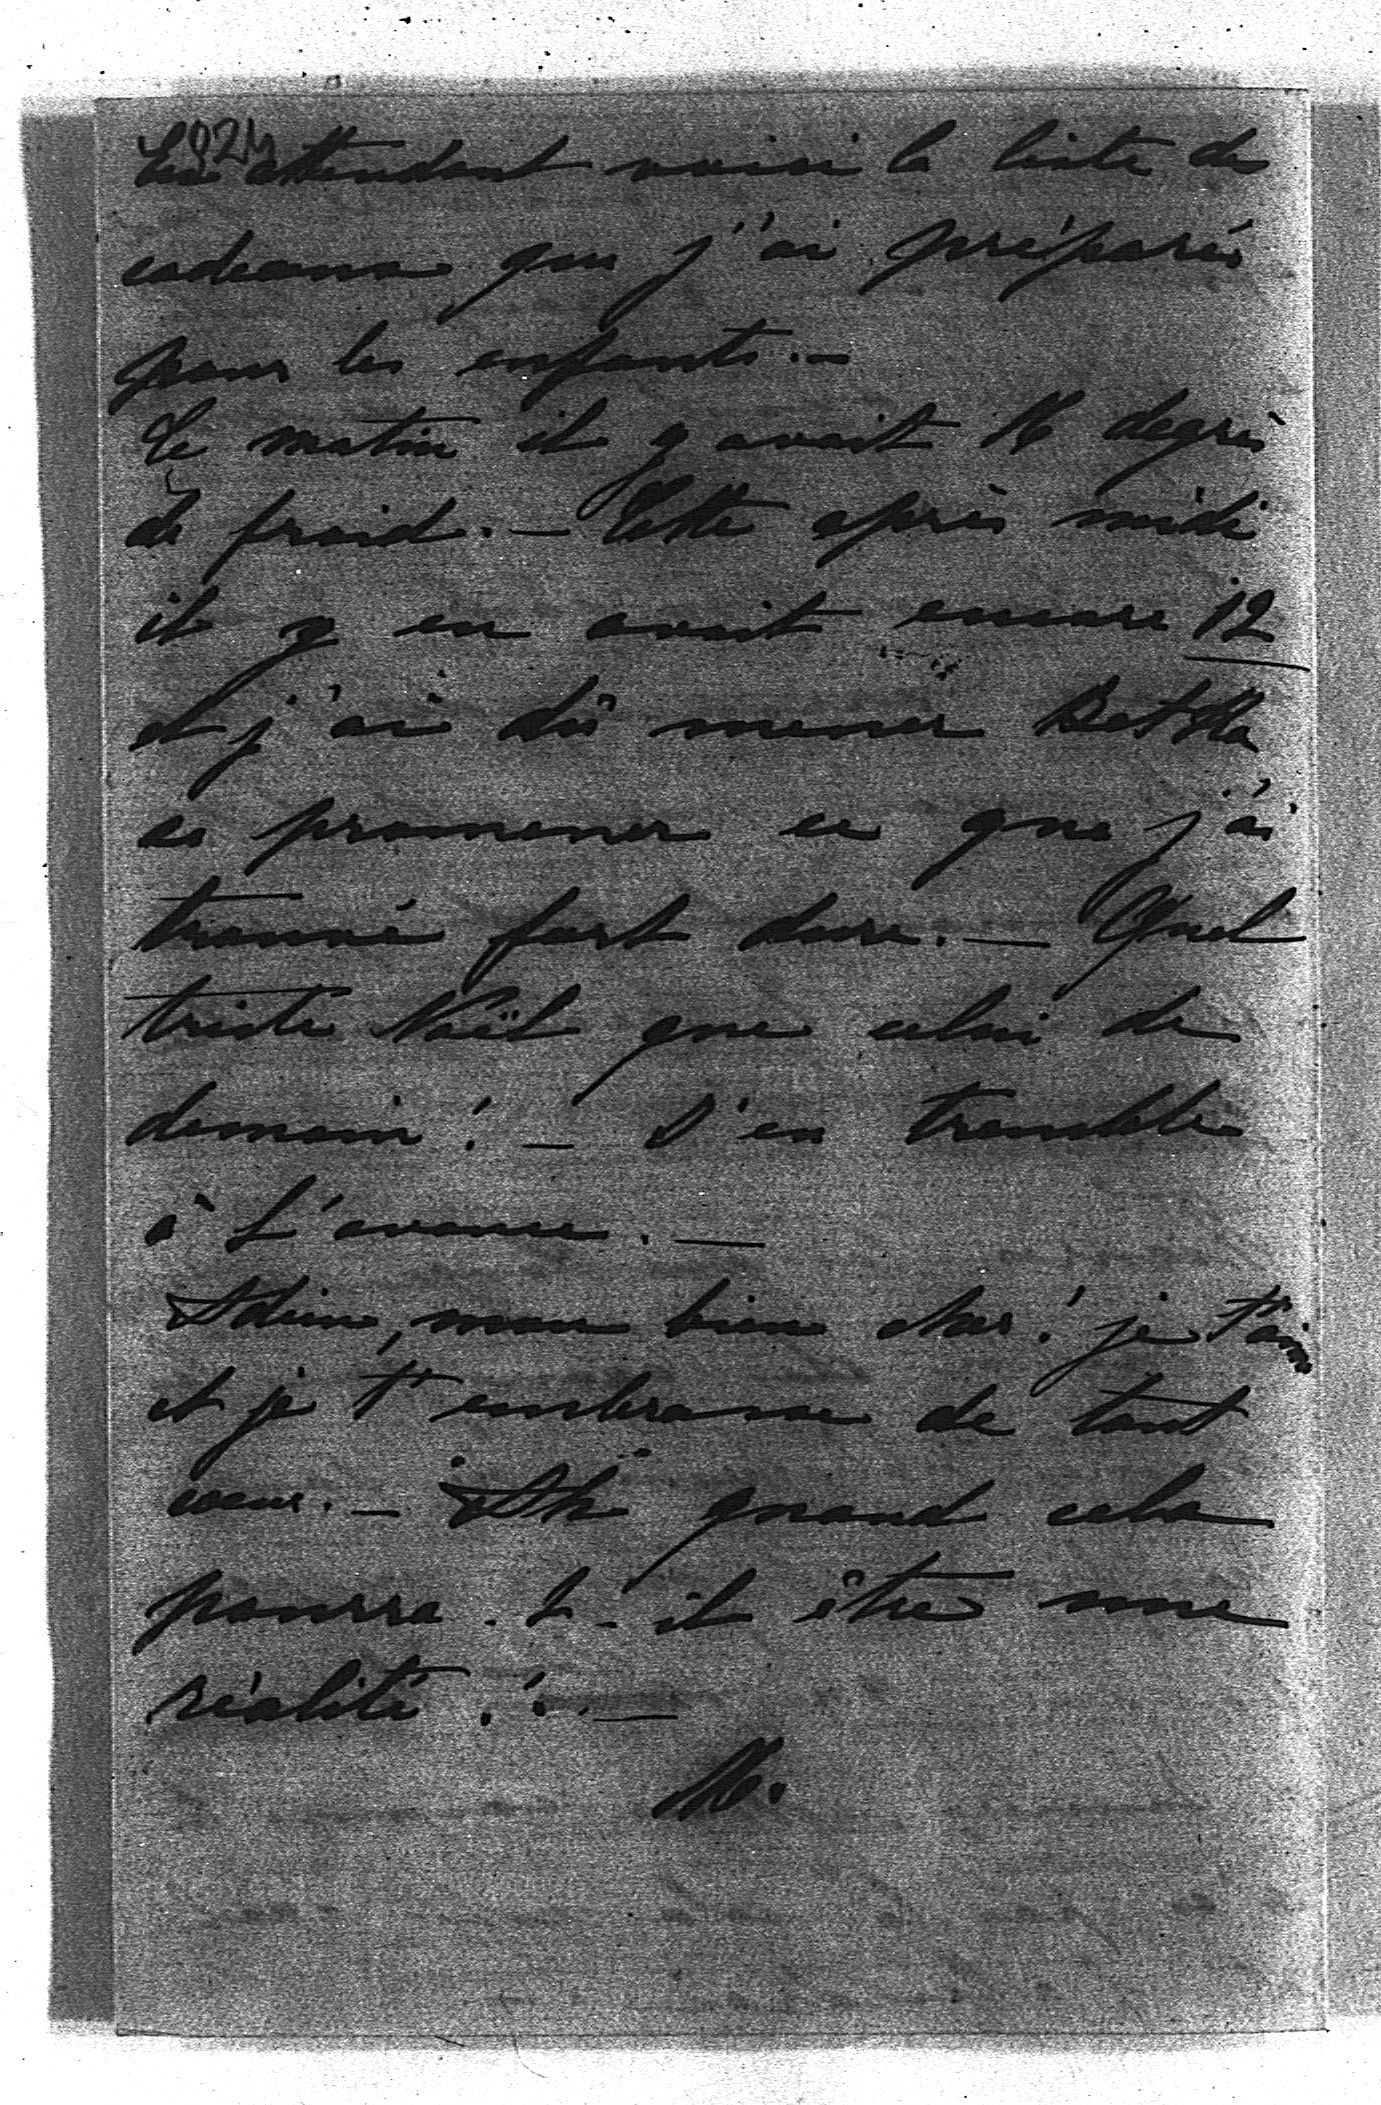 924
En attendant voici la liste de
cadeaux que j'ai préparés
pour les enfants. —
Ce matin il y avait 16 degrés
de froid. — Cette après midi
il y en avait encore 12
et j'ai dû mener Betka
se promener ce que j'ai
trouvé fort dure. — Quel
triste Noël que celui de
demain! — J'en tremble
à l'avance. —
Adieu, mon bien cher! je t'aime
et je t'embrasse de tout
cœur. — Ah quand cela
pourra-t-il être une
réalité!. —
M.